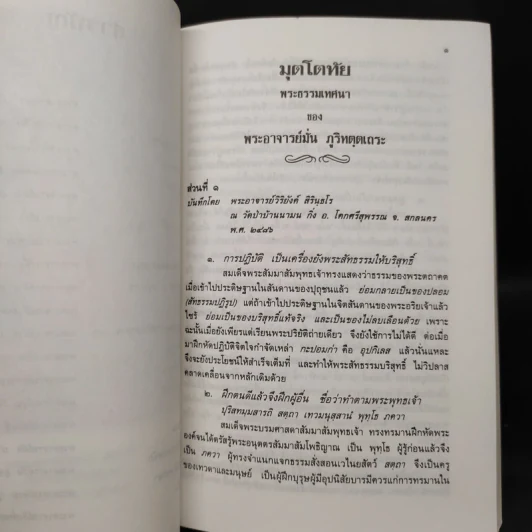 ๑
มุตโตทัย
พระธรรมเทศนา
ของ
พระอาจารย์มั่น ภูริทตฺตเถระ
ส่วนที่ ๑
บันทึกโดย พระอาจารย์วิริยังค์ สิรินฺธโร
ณ วัดป่าบ้านนามน กิ่ง อ. โคกศรีสุพรรณ จ. สกลนคร
พ.ศ. ๒๔๘๖
๑. การปฏิบัติ เป็นเครื่องยังพระสัทธรรมให้บริสุทธิ์
สมเด็จพระสัมมาสัมพุทธเจ้าทรงแสดงว่าธรรมของพระตถาคต
เมื่อเข้าไปประดิษฐานในสันดานของปุถุชนแล้ว ย่อมกลายเป็นของปลอม
(สัทธรรมปฏิรูป) แต่ถ้าเข้าไปประดิษฐานในจิตสันดานของพระอริยเจ้าแล้ว
ไซร้ ย่อมเป็นของบริสุทธิ์แท้จริง และเป็นของไม่ลบเลือนด้วย เพราะ
ฉะนั้นเมื่อยังเพียรแต่เรียนพระปริยัติถ่ายเดียว จึงยังใช้การไม่ได้ดี ต่อเมื่อ
มาฝึกหัดปฏิบัติจิตใจกำจัดเหล่า กะปอมก่า คือ อุปกิเลส แล้วนั่นแหละ
จึงจะยังประโยชน์ให้สำเร็จเต็มที่ และทำให้พระสัทธรรมบริสุทธิ์ ไม่วิปลาส
คลาดเคลื่อนจากหลักเดิมด้วย
๒. ฝึกตนดีแล้วจึงฝึกผู้อื่น ชื่อว่าทำตามพระพุทธเจ้า
ปุริสทมฺมสารถิ สตฺถา เทวมนุสฺสานํ พุทฺโธ ภควา
สมเด็จพระบรมศาสดาสัมมาสัมพุทธเจ้า ทรงทรมานฝึกหัดพระ
องค์จนได้ตรัสรู้พระอนุตตรสัมมาสัมโพธิญาณ เป็น พุทฺโธ ผู้รู้ก่อนแล้วจึง
เป็น ภควา ผู้ทรงจำแนกแจกธรรมสั่งสอนเวไนยสัตว์ สตฺถา จึงเป็นครู
ของเทวดาและมนุษย์ เป็นผู้ฝึกบุรุษผู้มีอุปนิสัยบารมีควรแก่การทรมานใน